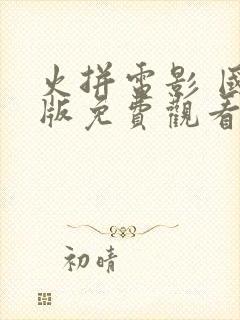 火拼雷影 國
版免費觀看
初晴